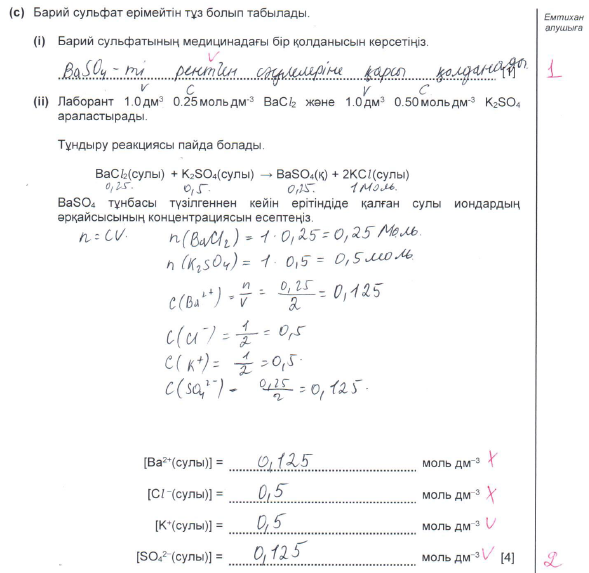 (c) Барий сульфат ерімейтін тұз болып табылады.
Емтихан алушыға
(i) Барий сульфатының медицинадағы бір қолданысын көрсетіңіз.
BaSO4-ті рентген сәулелеріне қарсы қолданады [1]
1
V C V C
(ii) Лаборант 1.0 дм³ 0.25 моль дм⁻³ BaCl₂ және 1.0 дм³ 0.50 моль дм⁻³ K₂SO₄
араластырады.
Тұндыру реакциясы пайда болады.
BaCl₂(сулы) + K₂SO₄(сулы) → BaSO₄(қ) + 2KCl(сулы)
0,25. 0,5. 0,25. 1 Моль.
BaSO₄ тұнбасы түзілгеннен кейін ерітіндіде қалған сулы иондардың
әрқайсысының концентрациясын есептеңіз.
n = CV. n(BaCl₂) = 1 · 0,25 = 0,25 Моль.
n(K₂SO₄) = 1 · 0,5 = 0,5 моль.
C(Ba²⁺) = n/V = 0,25/2 = 0,125
C(Cl⁻) = 1/2 = 0,5
C(K⁺) = 1/2 = 0,5.
C(SO₄²⁻) - 0,25/2 = 0,125.
[Ba²⁺(сулы)] = 0,125 моль дм⁻³ X
[Cl⁻(сулы)] = 0,5 моль дм⁻³ X
[K⁺(сулы)] = 0,5 моль дм⁻³ V
[SO₄²⁻(сулы)] = 0,125 моль дм⁻³ V [4] 2